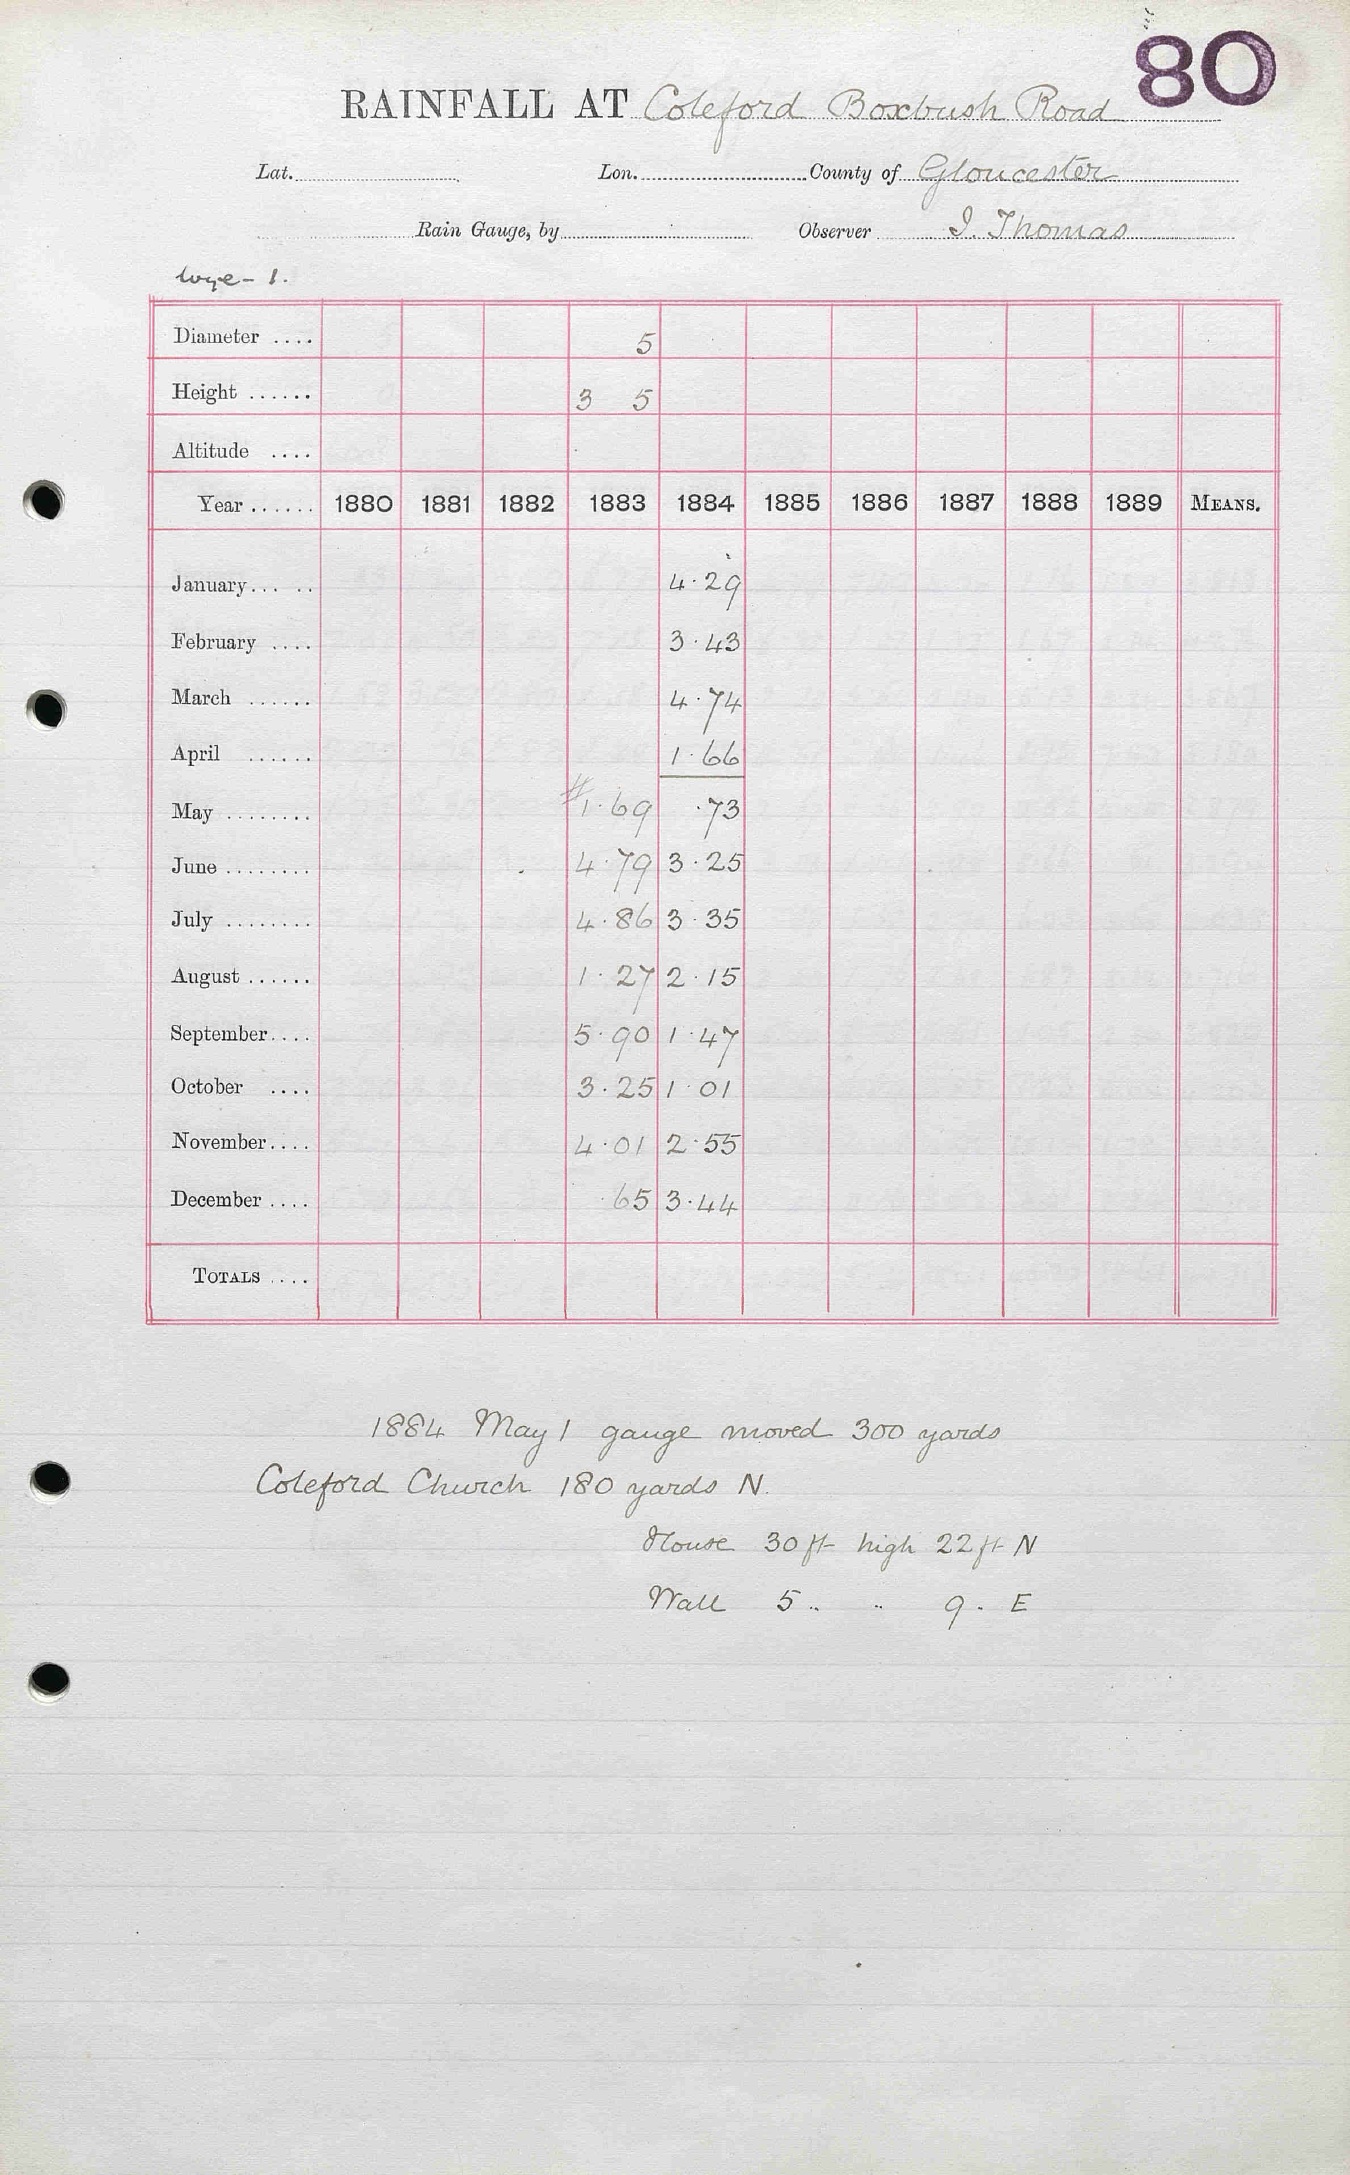 80
RAINFALL AT Coleford Boxbush Road
Lat. Lon. County of Gloucester
Rain Gauge, by Observer I. Thomas
Wye - 1.
Diameter .... 5
Height ...... 3 5
Altitude ....
Year ...... 1880 1881 1882 1883 1884 1885 1886 1887 1888 1889 MEANS.
January... .. 4.29
February .... 3.43
March ...... 4.74
April ...... 1.66
May ........ #1.69 .73
June ........ 4.79 3.25
July ........ 4.86 3.35
August ...... 1.27 2.15
September.... 5.90 1.47
October .... 3.25 1.01
November.... 4.01 2.55
December .... .65 3.44
TOTALS ....
1884 May 1 gauge moved 300 yards
Coleford Church 180 yards N.
House 30 ft high 22 ft N
Wall 5 " " 9 " E